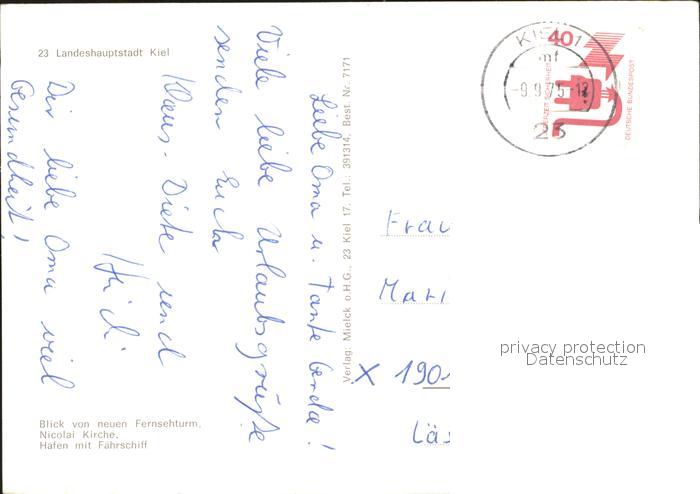 23 Landeshauptstadt Kiel
Liebe Oma u. Tante Gerda!
Viele liebe Urlaubsgrüße
senden Euch
Klaus-Dieter und
Dir liebe Oma viel
Gesundheit!
Blick von neuen Fernsehturm,
Nicolai Kirche,
Hafen mit Fährschiff
Verlag: Mielck o.H.G., 23 Kiel 17, Tel.: 391314, Best. Nr. 7171
KIEL 1
mf
-9.9.75-12
23
40
JEDERZEIT SICHERHEIT
DEUTSCHE BUNDESPOST
Frau
Mari
X 190
Läs
privacy protection
Datenschutz